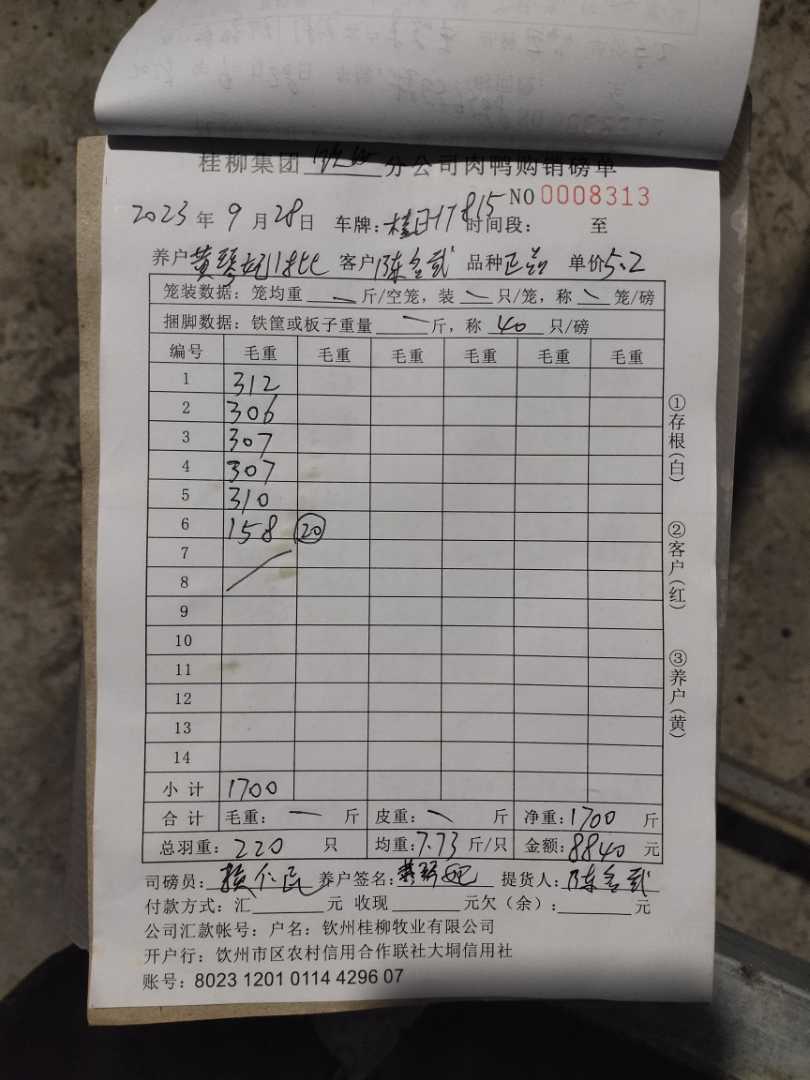 桂柳集团 钦州 分公司肉鸭购销磅单
NO 0008313
2023 年 9 月 28 日 车牌: 桂 17815 时间段: 至
养户 黄琴妃 客户 陈金武 品种 正品 单价 5.2
笼装数据: 笼均重 — 斤/空笼, 装 — 只/笼, 称 — 笼/磅
捆脚数据: 铁筐或板子重量 — 斤, 称 40 只/磅
编号 毛重 毛重 毛重 毛重 毛重 毛重
1 312
2 306
3 307
4 307
5 310
6 158 20
7
8
9
10
11
12
13
14
小计 1700
合计 毛重: — 斤 皮重: — 斤 净重: 1700 斤
总羽重: 220 只 均重: 7.73 斤/只 金额: 8840 元
司磅员: 养户签名: 黄琴妃 提货人: 陈金武
付款方式: 汇 元 收现 元欠(余): 元
公司汇款帐号: 户名: 钦州桂柳牧业有限公司
开户行: 钦州市区农村信用合作联社大垌信用社
账号: 8023 1201 0114 4296 07
①存根(白)
②客户(红)
③养户(黄)